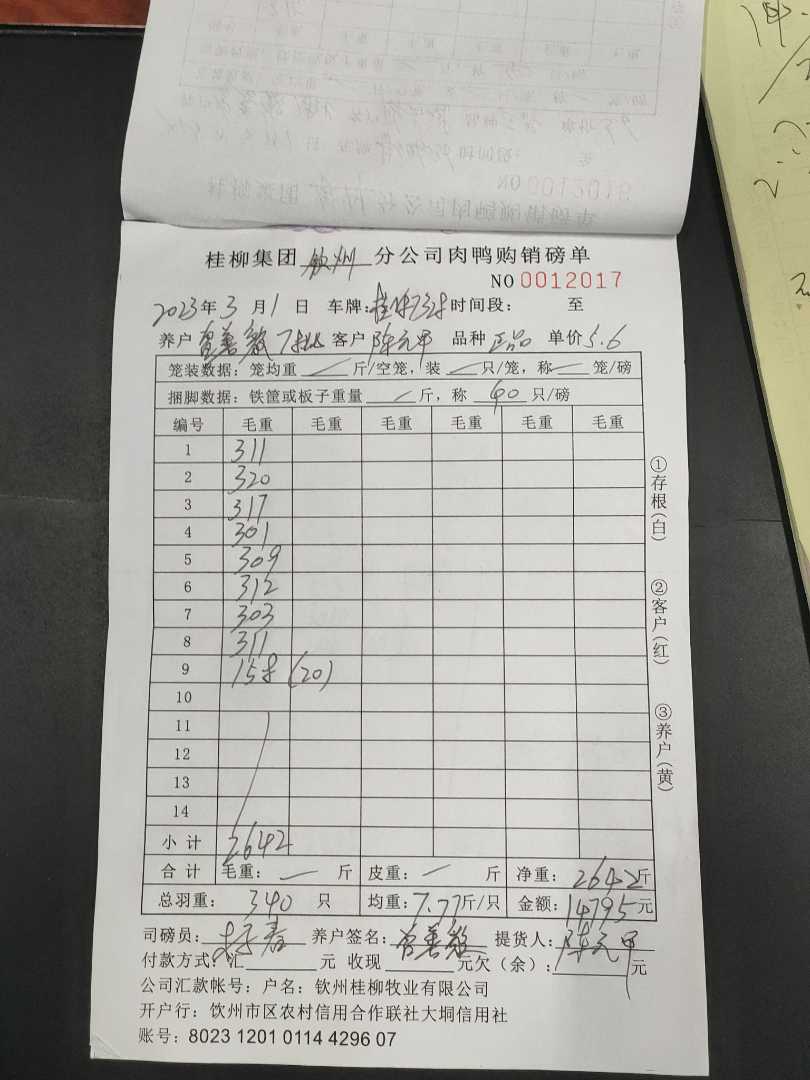 桂柳集团 钦州 分公司肉鸭购销磅单
NO 0012017
2023年3月1日 车牌: 时间段: 至
养户 曾善敏 7批 客户 陈元甲 品种 正品 单价 5.6
笼装数据: 笼均重 — 斤/空笼, 装 — 只/笼, 称 — 笼/磅
捆脚数据: 铁筐或板子重量 — 斤, 称 40 只/磅
编号 毛重 毛重 毛重 毛重 毛重 毛重
1 311
2 320
3 317
4 301
5 309
6 312
7 303
8 311
9 158 (20)
10
11
12
13
14
小计 2642
合计 毛重: — 斤 皮重: — 斤 净重: 2642斤
总羽重: 340 只 均重: 7.77斤/只 金额: 14795元
司磅员: 养户签名: 曾善敏 提货人: 陈元甲
付款方式: 汇 元 收现 元欠(余): 元
公司汇款帐号: 户名: 钦州桂柳牧业有限公司
开户行: 钦州市区农村信用合作联社大垌信用社
账号: 8023 1201 0114 4296 07
①存根(白)
②客户(红)
③养户(黄)